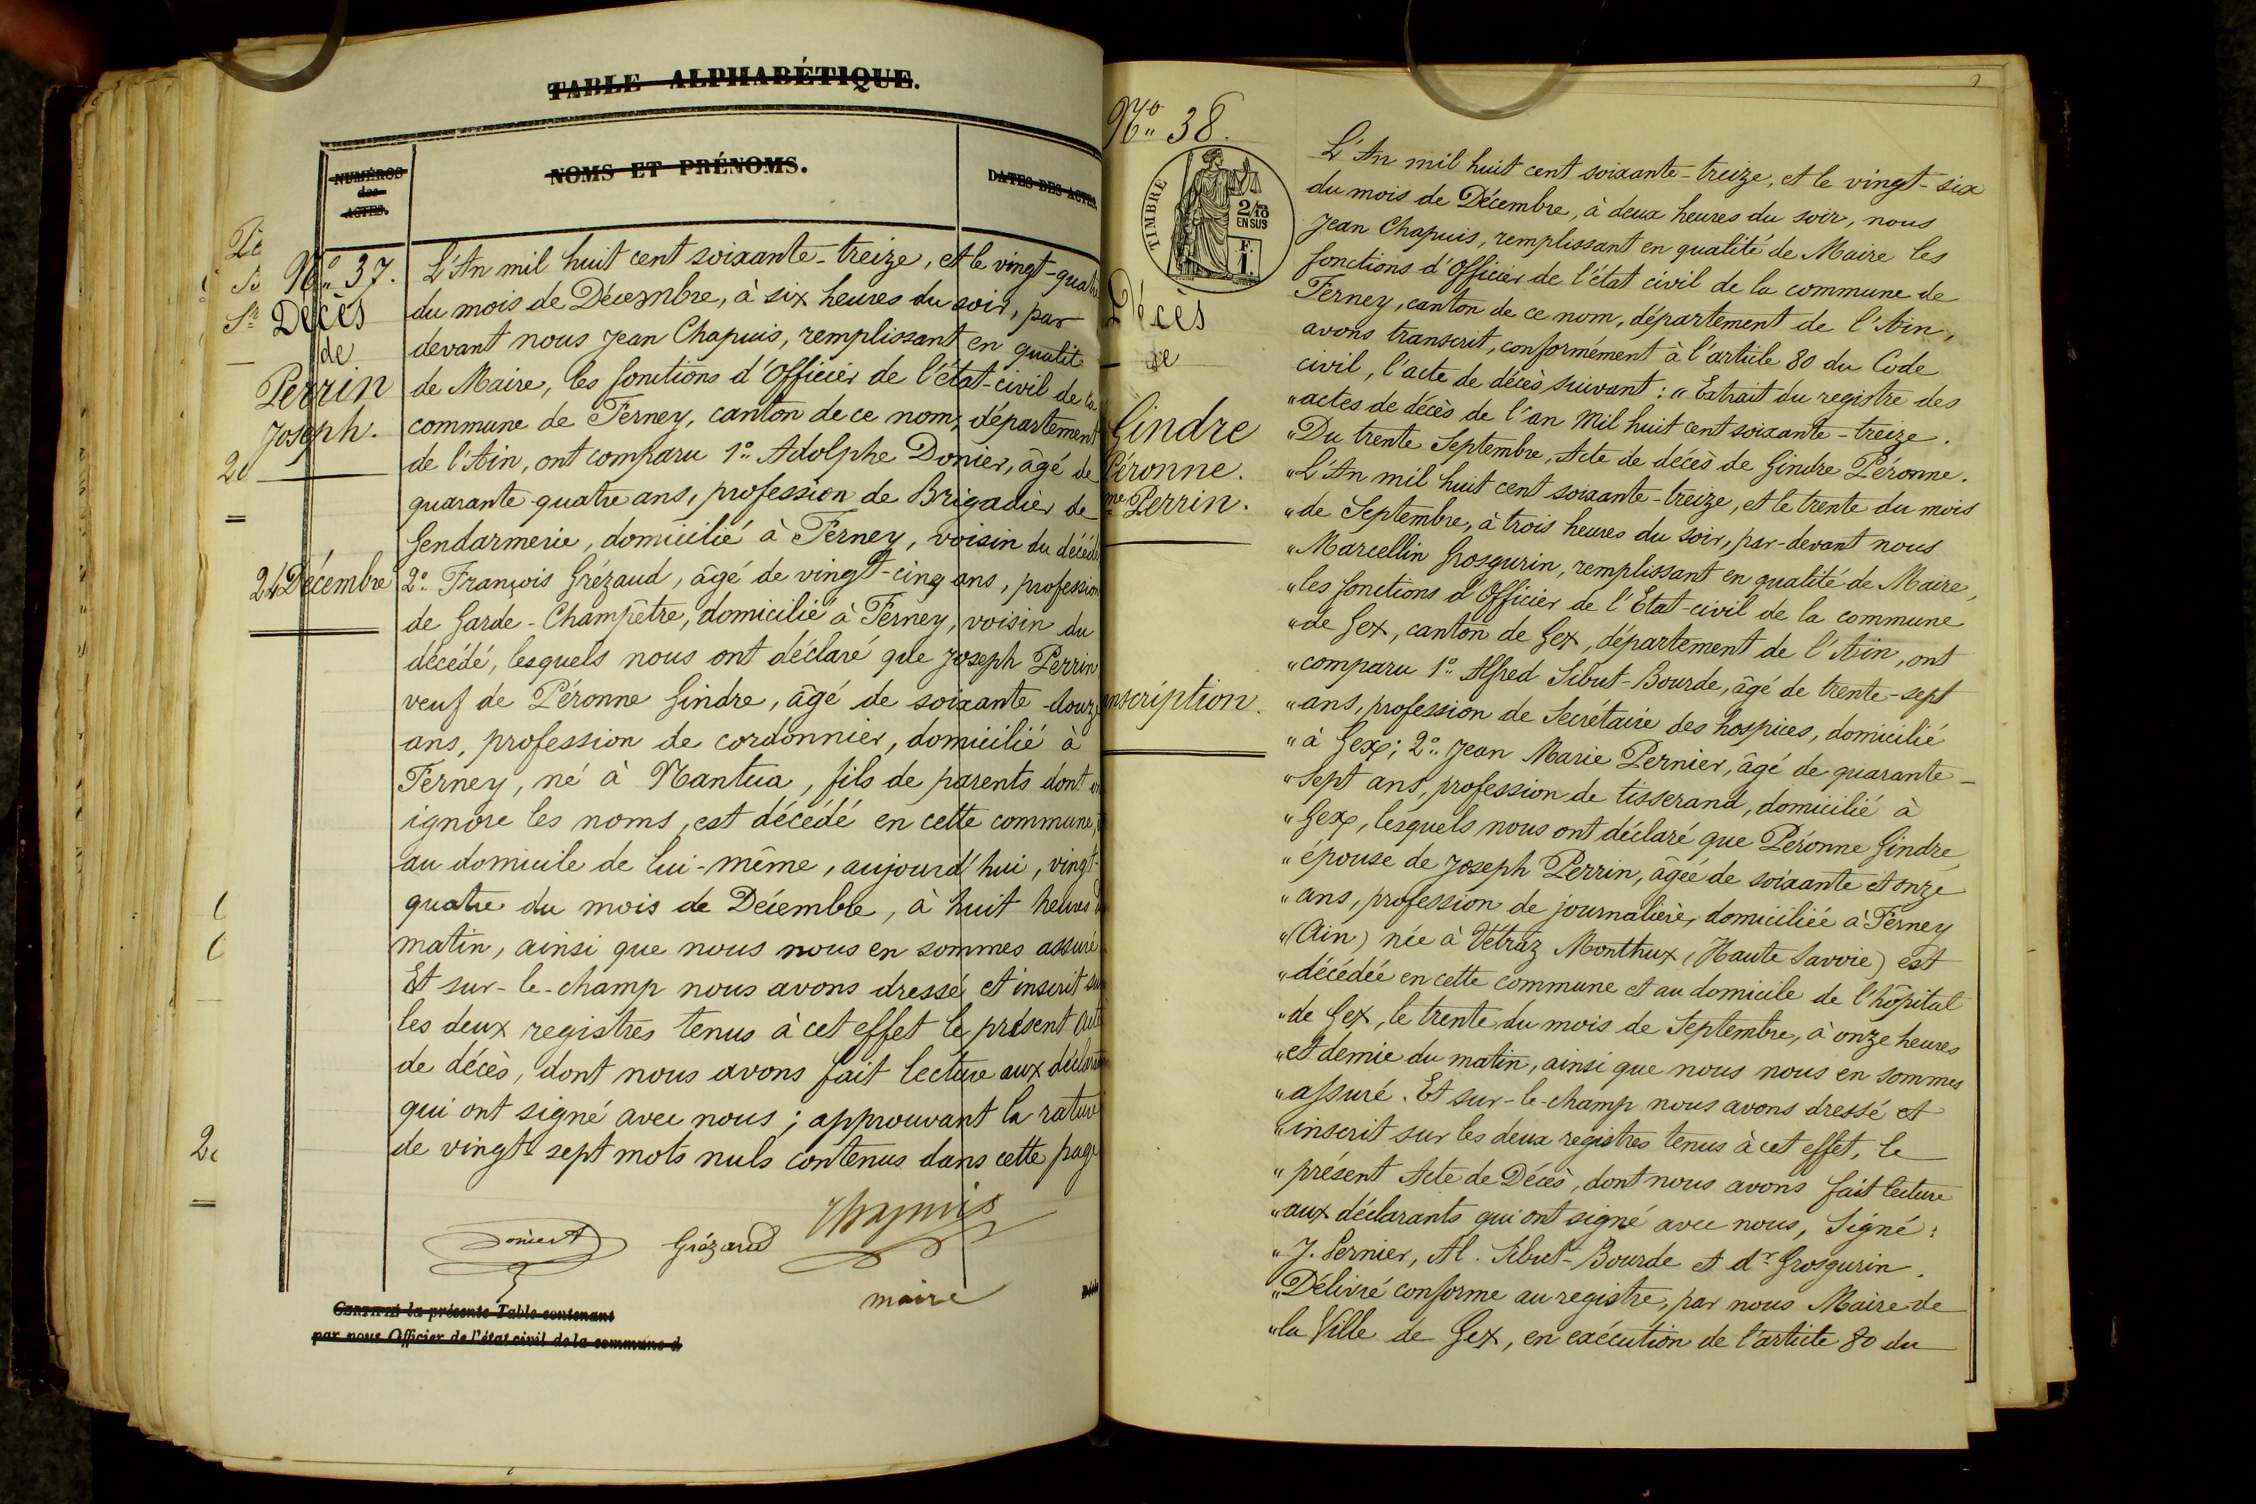 TABLE ALPHABÉTIQUE.
NUMÉROS
des
ACTES.
NOMS ET PRÉNOMS.
DATES DES ACTES.
No 37.
Décès
de
Perrin
Joseph.
24 Décembre
L'An mil huit cent soixante-treize, et le vingt-quatre
du mois de Décembre, à six heures du soir, par
devant nous Jean Chapuis, remplissant en qualité
de Maire, les fonctions d'Officier de l'état-civil de la
commune de Ferney, canton de ce nom, département
de l'Ain, ont comparu 1º Adolphe Donier, âgé de
quarante-quatre ans, profession de Brigadier de
Gendarmerie, domicilié à Ferney, voisin du décédé
2º François Grézaud, âgé de vingt-cinq ans, profession
de Garde-Champêtre, domicilié à Ferney, voisin du
décédé, lesquels nous ont déclaré que Joseph Perrin
veuf de Péronne Gindre, âgé de soixante-douze
ans, profession de cordonnier, domicilié à
Ferney, né à Nantua, fils de parents dont on
ignore les noms, est décédé en cette commune,
au domicile de lui-même, aujourd'hui, vingt-
quatre du mois de Décembre, à huit heures du
matin, ainsi que nous nous en sommes assuré
Et sur-le-champ nous avons dressé et inscrit sur
les deux registres tenus à cet effet le présent Acte
de décès, dont nous avons fait lecture aux déclarants
qui ont signé avec nous; approuvant la rature
de vingt-sept mots nuls contenus dans cette page
Donier A Grézaud Chapuis
maire
CERTIFIÉ la présente Table contenant
par nous Officier de l'état civil de la commune d
No 38.
TIMBRE
2/10
EN SUS
F.
1.
Décès
de
Gindre
Péronne.
me Perrin.
nscription.
L'An mil huit cent soixante-treize, et le vingt-six
du mois de Décembre, à deux heures du soir, nous
Jean Chapuis, remplissant en qualité de Maire les
fonctions d'Officier de l'état civil de la commune de
Ferney, canton de ce nom, département de l'Ain,
avons transcrit, conformément à l'article 80 du Code
civil, l'acte de décès suivant: "Extrait du registre des
"actes de décès de l'an Mil huit cent soixante-treize.
"Du trente Septembre, Acte de décès de Gindre Péronne.
"L'An mil huit cent soixante-treize, et le trente du mois
"de Septembre, à trois heures du soir, par-devant nous
"Marcellin Grosgurin, remplissant en qualité de Maire,
"les fonctions d'Officier de l'Etat-civil de la commune
"de Gex, canton de Gex, département de l'Ain, ont
"comparu 1º Alfred Sibut-Bourde, âgé de trente-sept
"ans, profession de Secrétaire des hospices, domicilié
"à Gex; 2º Jean Marie Pernier, âgé de quarante-
"sept ans, profession de tisserand, domicilié à
"Gex, lesquels nous ont déclaré que Péronne Gindre,
"épouse de Joseph Perrin, âgée de soixante et onze
"ans, profession de journalière, domiciliée à Ferney
"(Ain) née à Vétraz Monthux (Haute Savoie) est
"décédée en cette commune et au domicile de l'hôpital
"de Gex, le trente du mois de Septembre, à onze heures
"et demie du matin, ainsi que nous nous en sommes
"assuré. Et sur-le-champ nous avons dressé et
"inscrit sur les deux registres tenus à cet effet, le
"présent Acte de Décès, dont nous avons fait lecture
"aux déclarants qui ont signé avec nous, Signé:
"J. Pernier, Al. Sibut-Bourde et dr Grosgurin.
"Délivré conforme au registre, par nous Maire de
"la Ville de Gex, en exécution de l'article 80 du